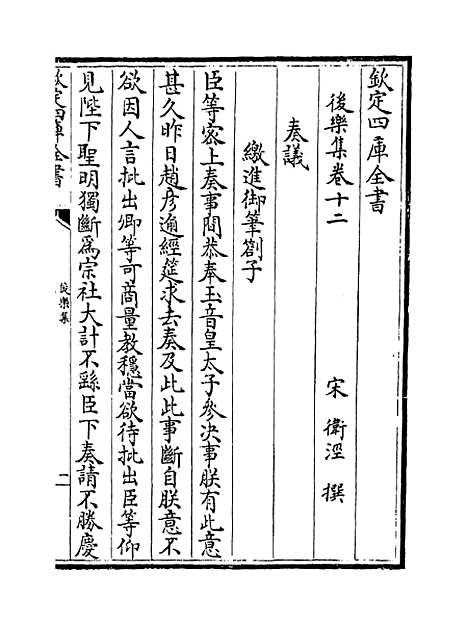 欽定四庫全書
後樂集卷十二　宋　衛涇　撰
奏議
繳進御筆劄子
臣等宻上奏事間恭奉玉音皇太子參決事朕有此意
甚久昨日趙彦逾經筵求去奏及此此事斷自朕意不
欲因人言批出卿等可商量教穩當欲待批出臣等仰
見陛下聖明獨斷為宗社大計不繇臣下奏請不勝慶
欽定四庫全書
後樂集